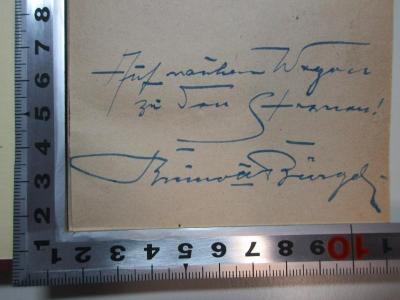 Auf rauhen Wegen
zu den Sternen!
Bruno H. Bürgel
8
7
6
5
4
3
2
1
1 2 3 4 5 6 7 8 9 10 11